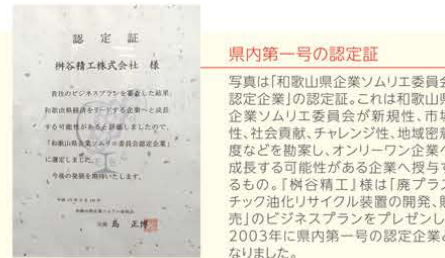 認定証
桝谷精工株式会社 様
貴社のビジネスプランを審査した結果
和歌山県経済をリードする企業へと成長
する可能性があると評価しましたので、
「和歌山県企業ソムリエ委員会認定企業」
に選定しました。
今後の発展を期待いたします。
県内第一号の認定証
写真は「和歌山県企業ソムリエ委員会
認定企業」の認定証。これは和歌山県
企業ソムリエ委員会が新規性、市場
性、社会貢献、チャレンジ性、地域密着
度などを勘案し、オンリーワン企業へ
成長する可能性がある企業へ授与す
るもの。「桝谷精工」様は「廃プラス
チック油化リサイクル装置の開発、販
売」のビジネスプランをプレゼンし、
2003年に県内第一号の認定企業と
なりました。